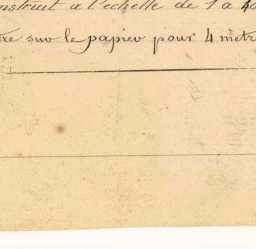 construit a l'échelle de 1 a 40
sur le papier pour 4 mètr